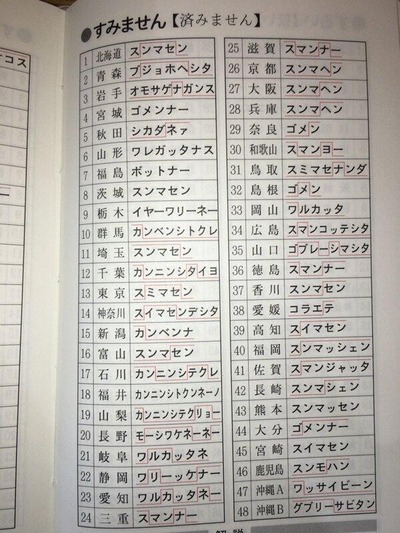 コス
●すみません【済みません】
1 北海道 スンマセン
2 青森 ブジョホヘシタ
3 岩手 オモサゲナガンス
4 宮城 ゴメンナー
5 秋田 シカダネァ
6 山形 ワレガッタナス
7 福島 ボットナー
8 茨城 スンマセン
9 栃木 イヤーワリーネー
10 群馬 カンベンシトクレ
11 埼玉 スンマセン
12 千葉 カンニンシタイヨ
13 東京 スミマセン
14 神奈川 スイマセンデシタ
15 新潟 カンベンナ
16 富山 スンマセン
17 石川 カンニンシテクレ
18 福井 カンニンシトクンネーノ
19 山梨 カンニンシテクリョー
20 長野 モーシワケネーネー
21 岐阜 ワルカッタネ
22 静岡 ワリーッケナー
23 愛知 ワルカッタネー
24 三重 スマンナー
25 滋賀 スマンナー
26 京都 スンマヘン
27 大阪 スンマヘン
28 兵庫 スンマヘン
29 奈良 ゴメン
30 和歌山 スマンヨー
31 鳥取 スミマセナンダ
32 島根 ゴメン
33 岡山 ワルカッタ
34 広島 スマンコッテシタ
35 山口 ゴブレーシマシタ
36 徳島 スマンナー
37 香川 スンマセン
38 愛媛 コラエテ
39 高知 スイマセン
40 福岡 スンマッシェン
41 佐賀 スマンジャッタ
42 長崎 スンマシェン
43 熊本 スンマッセン
44 大分 ゴメンナー
45 宮崎 スイマセン
46 鹿児島 スンモハン
47 沖縄A ワッサイビーン
48 沖縄B グブリーサビタン